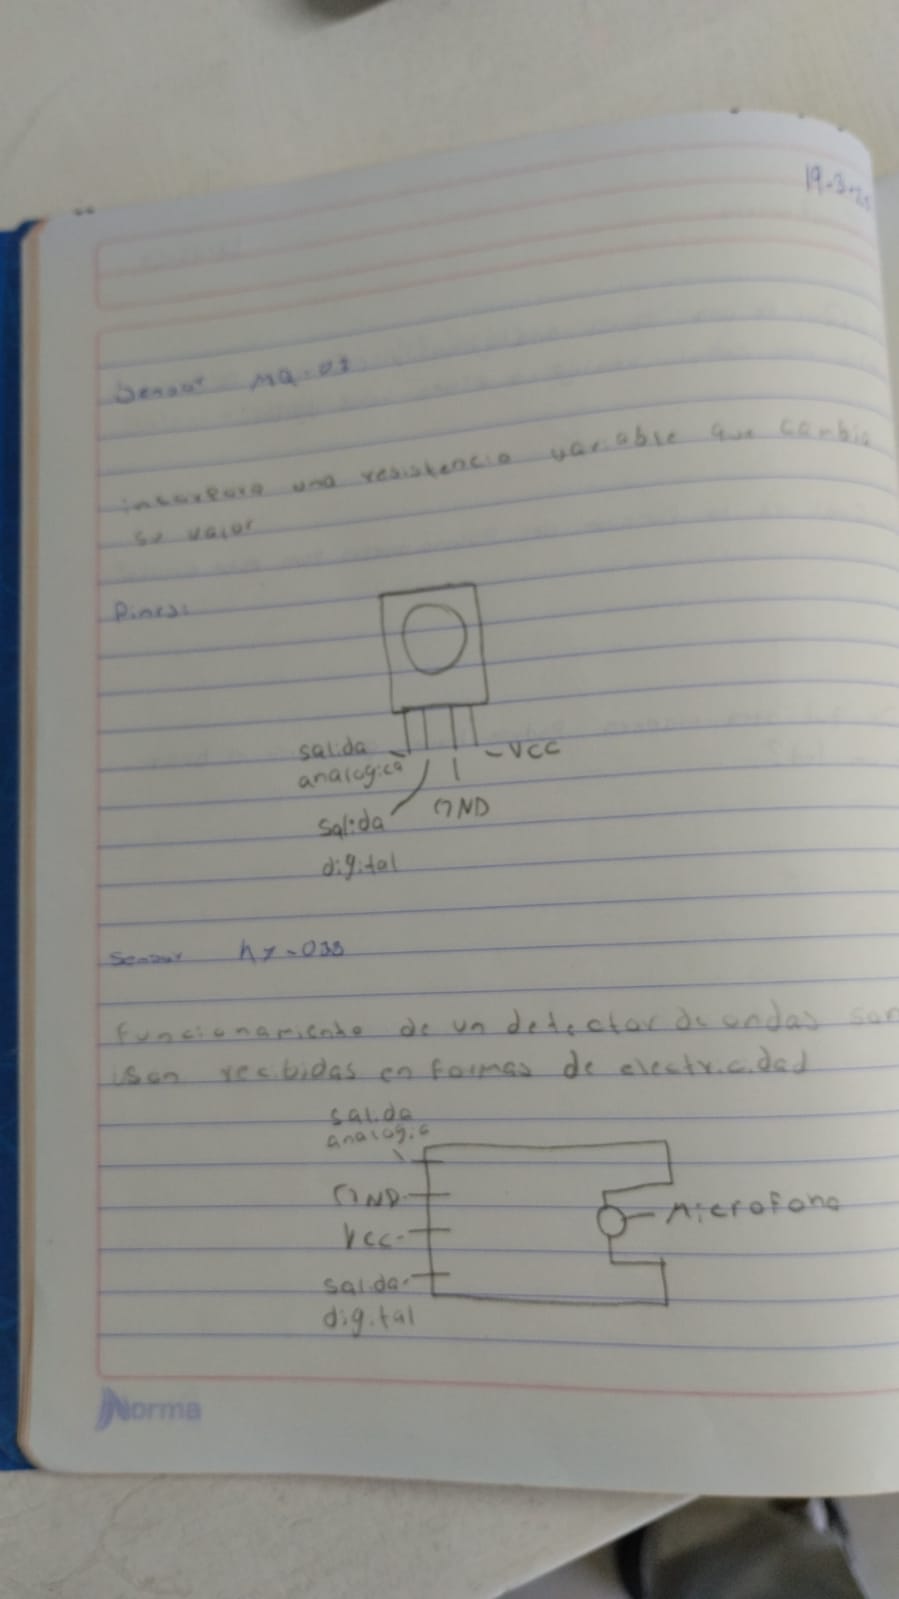 19-3-25
Sensor MQ-03
incorpora una resistencia variable que cambia
su valor
Pines:
salida
analogica
-VCC
GND
salida
digital
Sensor ky-038
Funcionamiento de un detector de ondas son
recibidas en formas de electricidad
salida
analogic
GND
Vcc
Microfono
salida
digital
Norma